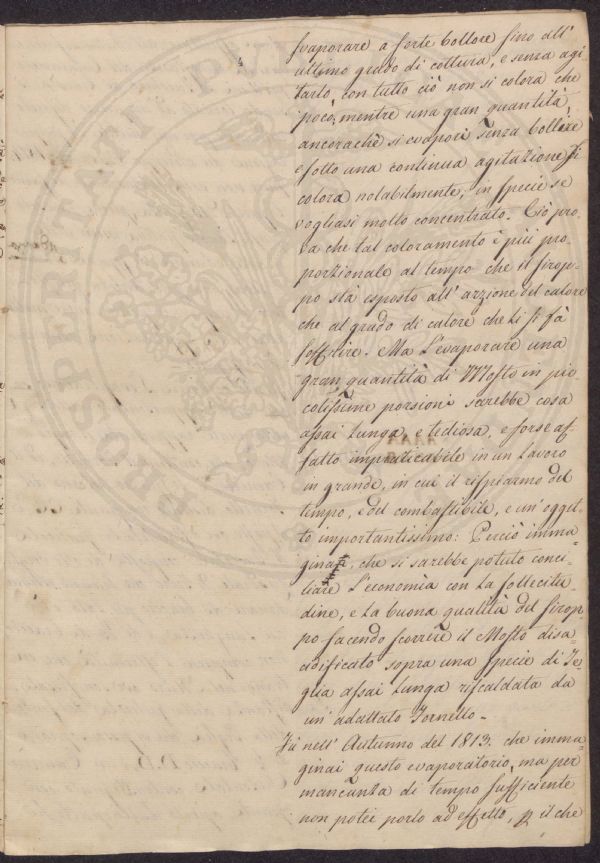 svaporare a forte bollore fino all'
ultimo grado di cottura, e senza agi
tarlo, con tutto ciò non si colora che
poco, mentre una gran quantità,
ancorachè si evapori senza bollire
e sotto una continua agitazione si
colora notabilmente, in specie se
vogliasi molto concentrato. Ciò pro,
va che tal coloramento è più pro,
porzionale al tempo che il sirop,
po stà esposto all' arzione del calore
che al grado di calore che Li si fà
soffrire. Ma L'evaporare una
gran quantità di Mosto in pic
colissime porsioni sarebbe cosa
assai Lunga, e tediosa, e forse af
fatto impraticabile in un Lavoro
in grande, in cui il risparmo del
tempo, e del combustibile, e un' ogget,
to importantissimo: Perciò imma=
ginai, che si sarebbe potuto conci,
liare L'economìa con La sollecitu,
dine, e La buona qualità del sirop,
po facendo scorrere il Mosto disa
cidificato sopra una specie di Te,
gua assai Lunga riscaldata da
un' adattato Fornello.
Fù nell' Autunno del 1813. che imma=
ginai questo evaporatorio, ma per
mancanza di tempo sufficiente
non potei porlo ad effetto, il che
PROSPERITATI PVB